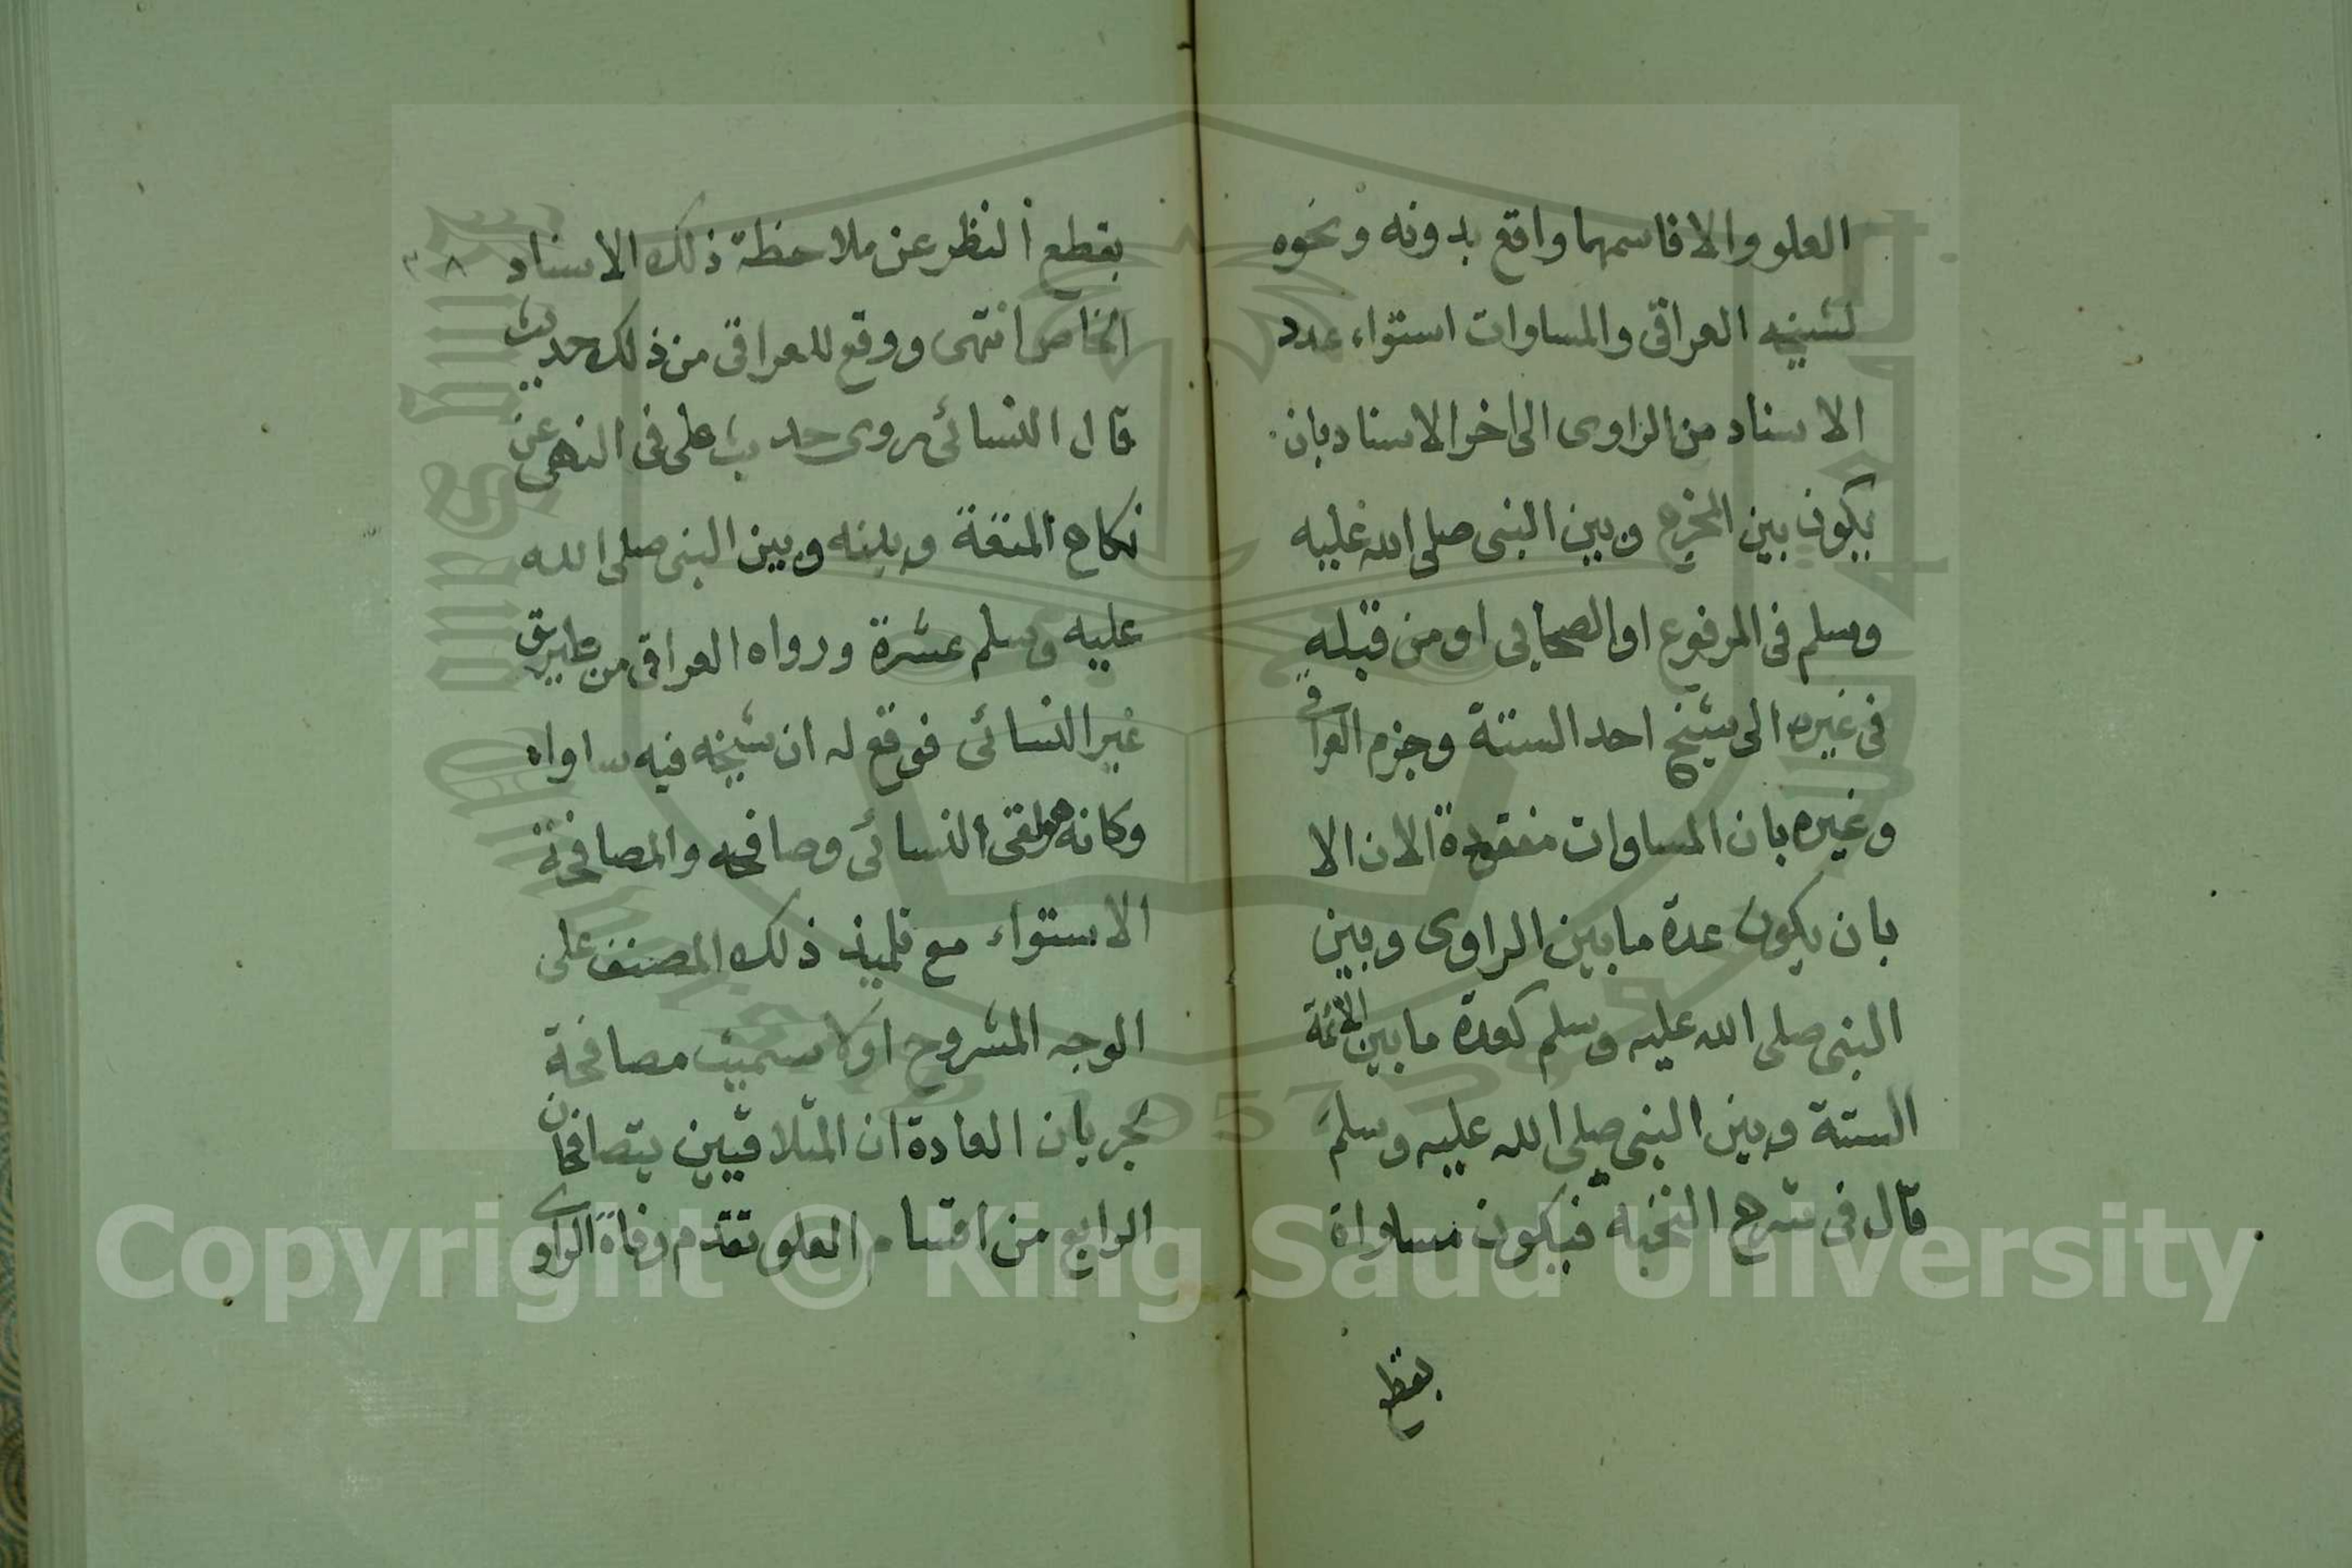 العلو والا فاسمهما واقع بدونه ونحوه
لشيخه العراقى والمساوات استواء عدد
الاسناد من الراوى الى اخر الاسناد بان
يكون بين المخرج وبين النبى صلى الله عليه
وسلم فى المرفوع او الصحابى او من قبله
فى غيره الى شيخ احد الستة وجزم العراقى
وغيره بان المساوات مفقودة الان الا
بان يكون عدة ما بين الراوى وبين
النبى صلى الله عليه وسلم كعدة ما بين الائمة
الستة وبين النبى صلى الله عليه وسلم
قال فى شرح النخبة فيكون مساواة
بقطع
بقطع النظر عن ملاحظة ذلك الاسناد
٣٨
الخاص انتهى ووقع للعراقى من ذلك حديث
قال النسائى روى حديث على فى النهى عن
نكاح المتعة وبينه وبين النبى صلى الله
عليه وسلم عشرة ورواه العراقى من طريق
غير النسائى فوقع له ان شيخه فيه ساواه
وكانه هو لقى النسائى وصافحه والمصافحة
الاستواء مع تلميذ ذلك المصنف على
الوجه المشروح اولا سميت مصافحة
لجريان العادة ان المتلاقيين يتصافحان
الرابع من اقسام العلو تقدم وفاة الراوى
Copyright © King Saud University
1957